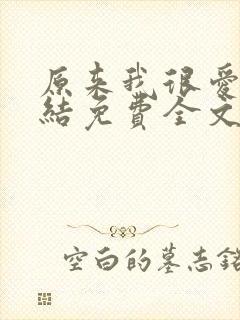 原来我很爱
结免費全文
空白的墓志铭